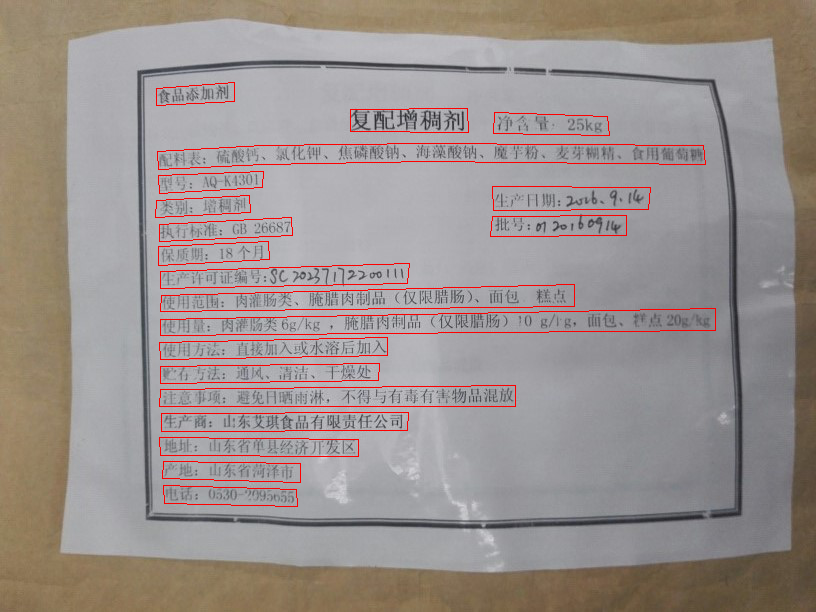 食品添加剂
复配增稠剂
净含量：25kg
配料表：硫酸钙、氯化钾、焦磷酸钠、海藻酸钠、魔芋粉、麦芽糊精、食用葡萄糖
型号：AQ-K4301
类别：增稠剂
生产日期：2016.9.14
执行标准：GB 26687
批号：0120160914
保质期：18个月
生产许可证编号：SC20237172200111
使用范围：肉灌肠类、腌腊肉制品（仅限腊肠）、面包 糕点
使用量：肉灌肠类6g/kg，腌腊肉制品（仅限腊肠）10 g/kg，面包、糕点20g/kg
使用方法：直接加入或水溶后加入
贮存方法：通风、清洁、干燥处
注意事项：避免日晒雨淋，不得与有毒有害物品混放
生产商：山东艾琪食品有限责任公司
地址：山东省单县经济开发区
产地：山东省菏泽市
电话：0530-2095655